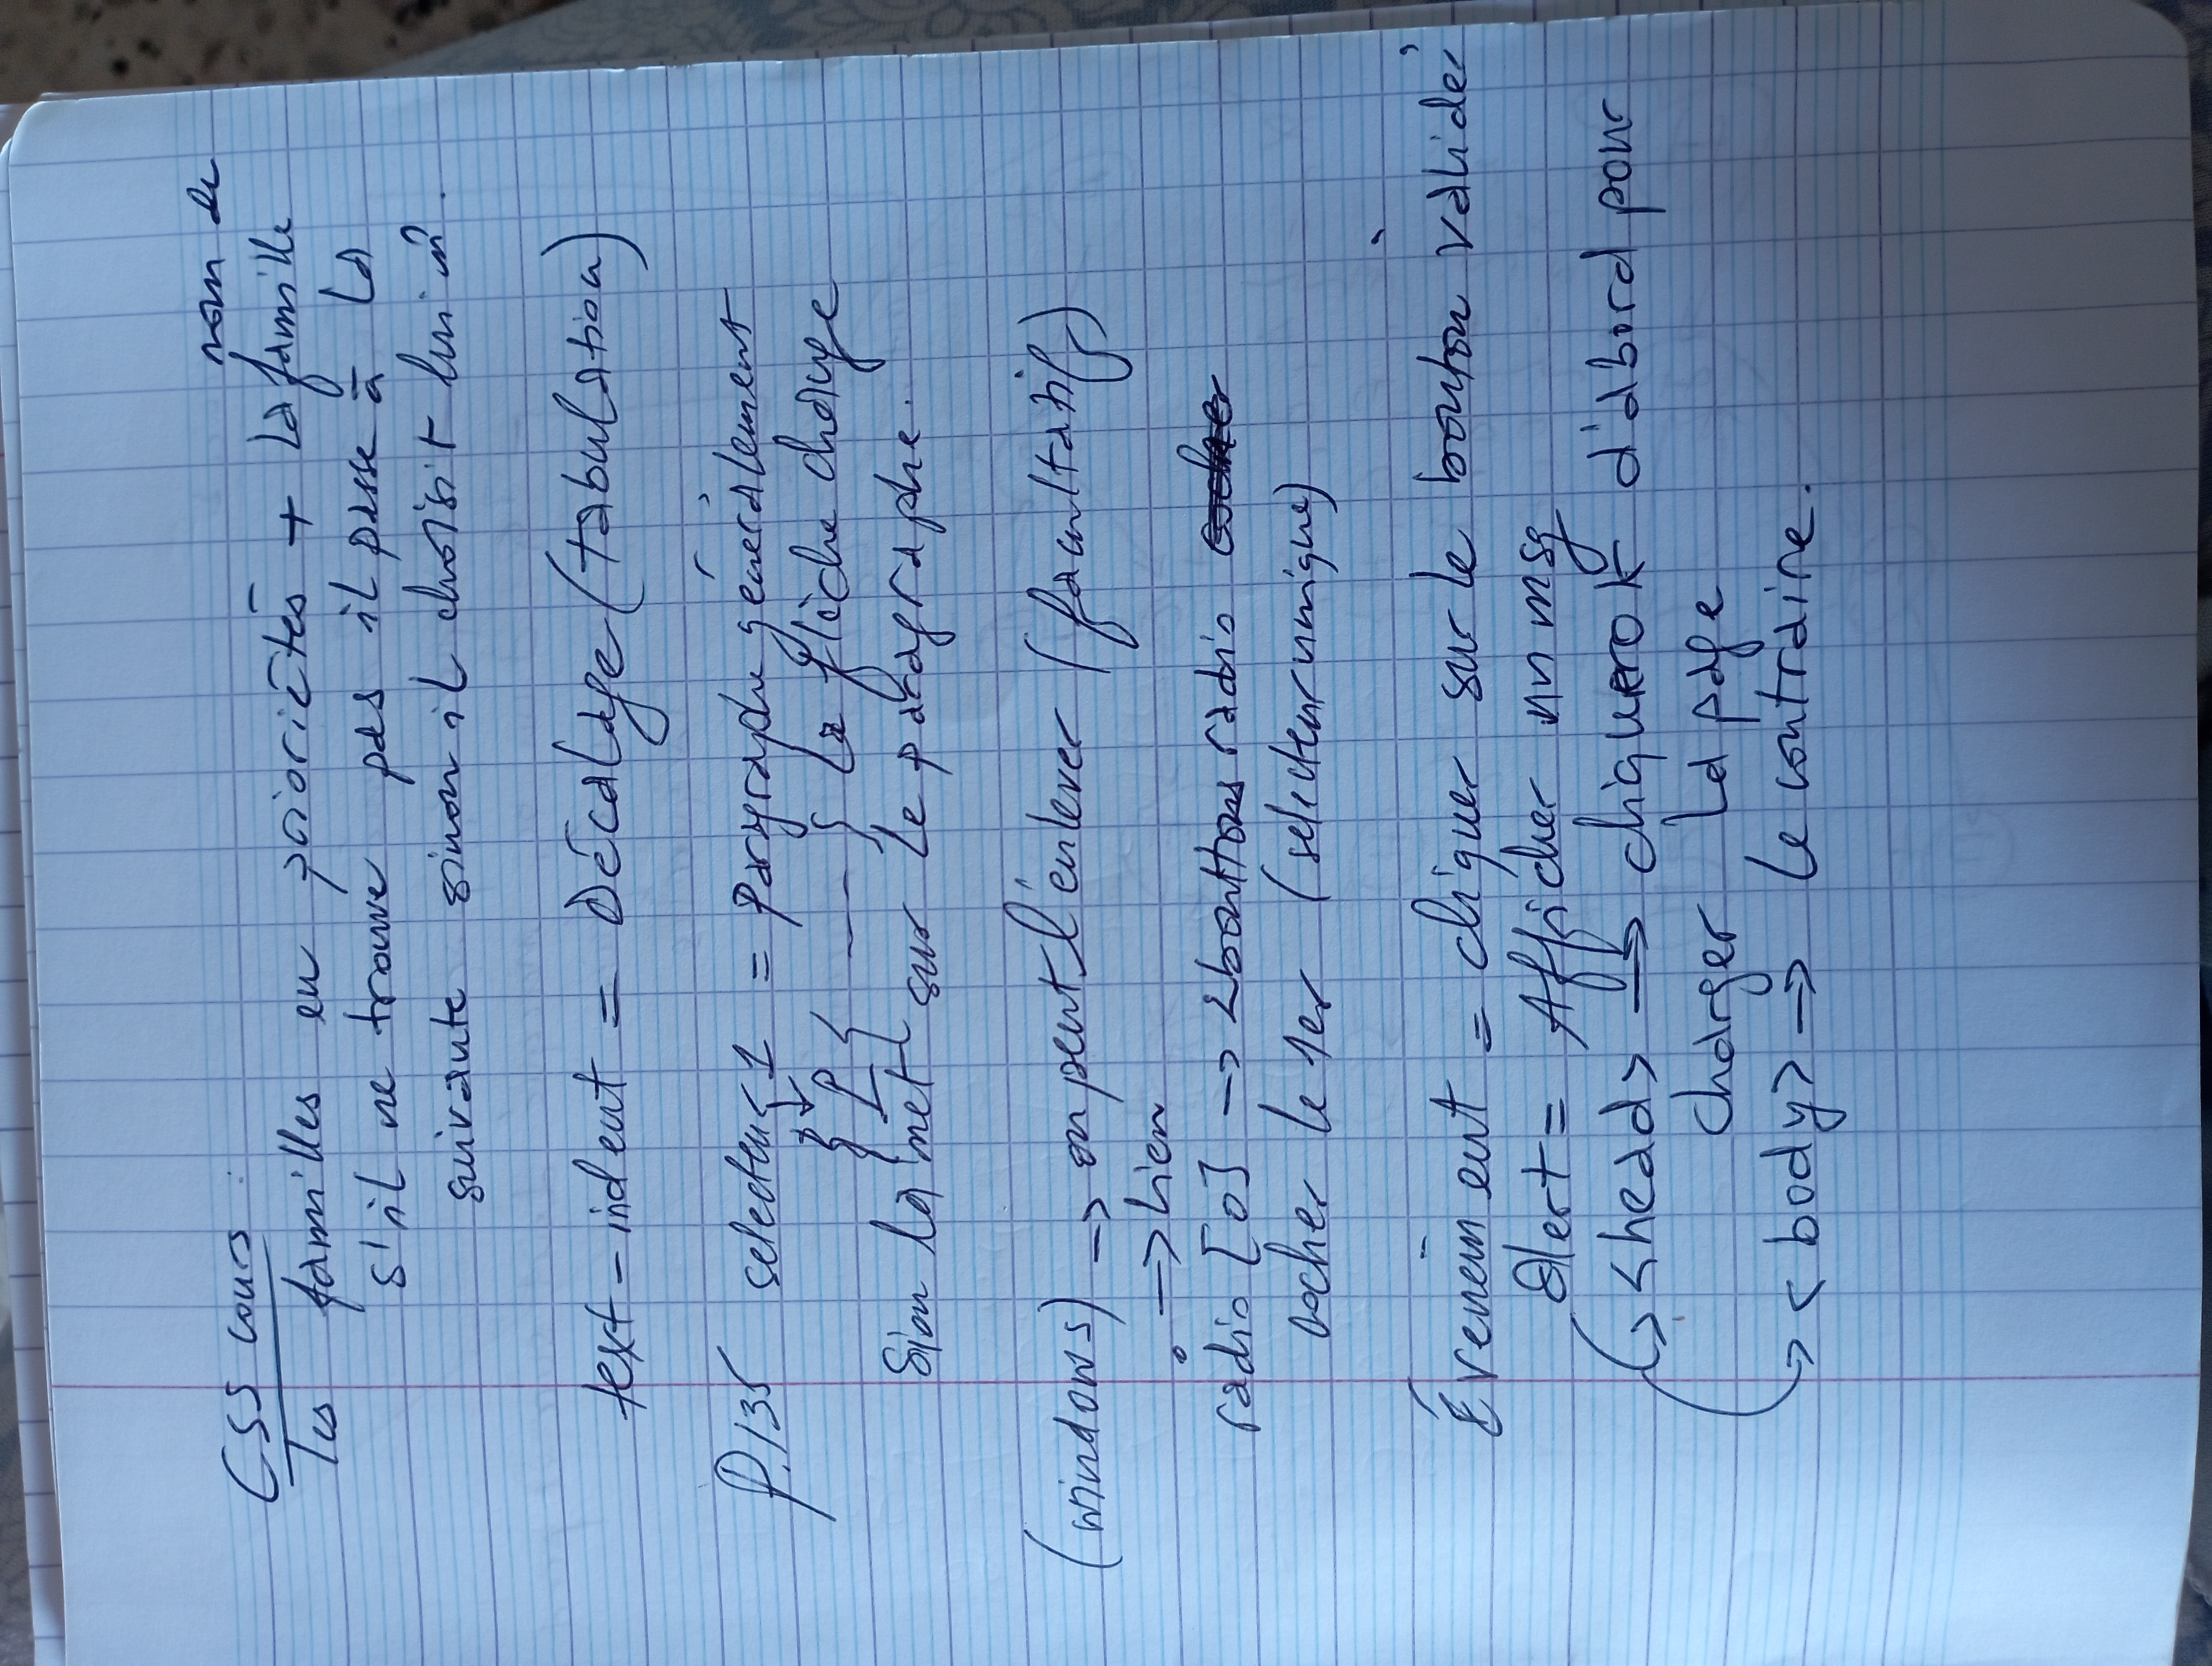 CSS cours :
nom de
Les familles en prioriétés + La famille
s'il ne trouve pas il passe à La
suivante sinon il choisit lui m̂.
text-indent = Décalage (tabulation)
P.135 selecteur 1 = paragraphe généralement
} P { --- } La flèche change
Si on la met sur le paragraphe.
(windows) -> on peut l'enlever (facultatif)
. -> Lien
radio [0] -> 2 bouttons radio
cocher le 1er (selecteur unique)
Évenèment = cliquer sur le bouton valider
Alert = Afficher un msg
<head> -> cliquer ok d'abord pour
charger La page
-> <body> -> Le contraire.